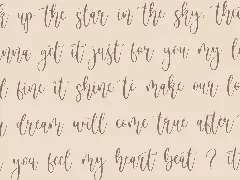 up the star in the sky. the
get it just for you my l
fine it shine to make our lo
dream will come true after
you feel my heart beat ? it